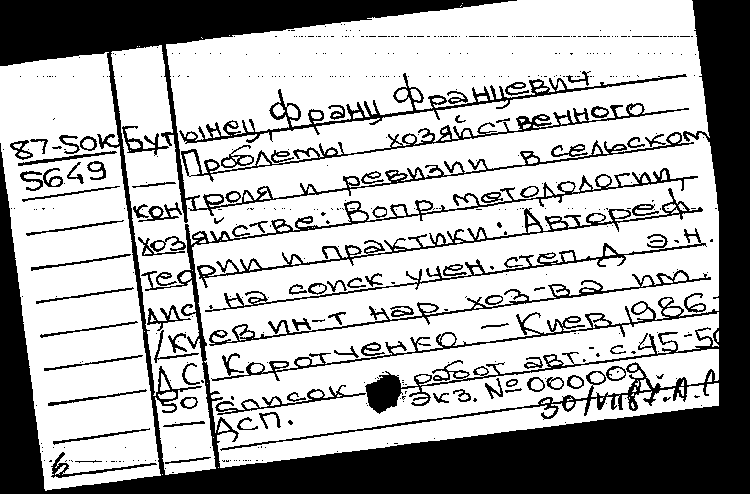 87-50к Бутынец, Франц Францевич.
5649 Проблемы хозяйственного
контроля и ревизии в сельском
хозяйстве: Вопр. методологии,
теории и практики: Автореф.
дис. на соиск. учен. степ. д. э.н.
/Киев. ин-т нар. хоз-ва им.
Д.С. Коротченко. – Киев, 1986.-
50 с. Список работ авт.: с. 45-50
ДСП. Экз. № 000009.
б